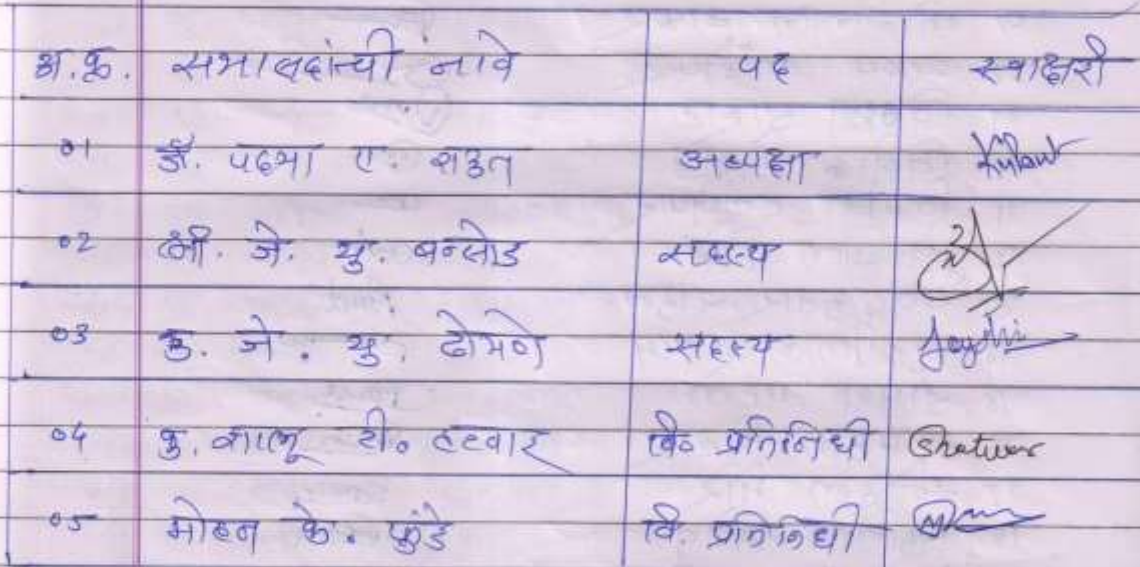 अ.क्र. सभासदांची नावे पद स्वाक्षरी
01 डॉ. पद्मा ए. राऊत अध्यक्षा
02 श्री. जे. यु. बन्सोड सदस्य
03 कु. जे. यु. ढोमणे सदस्य
04 कु. शालू टी. हटवार वि. प्रतिनिधी Shatwar
05 मोहन के. फुंडे वि. प्रतिनिधी